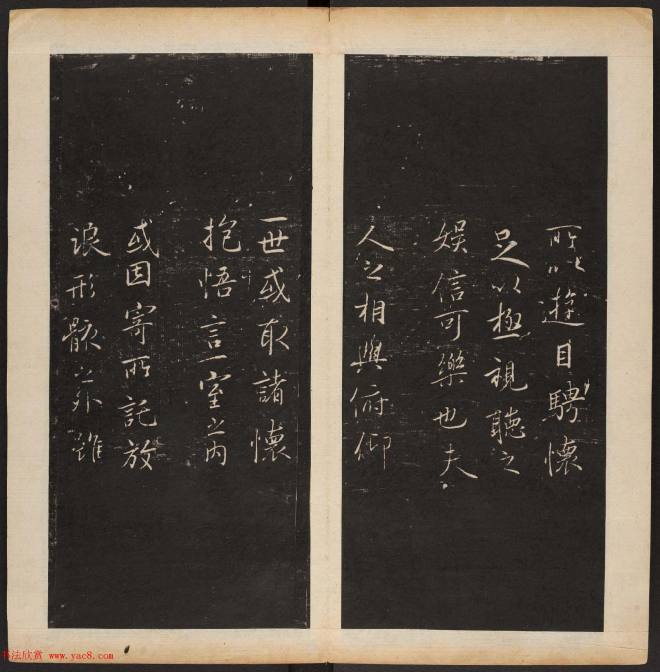 所以遊目騁懷
足以極視聽之
娛信可樂也夫
人之相與俯仰
一世或取諸懷
抱悟言一室之內
或因寄所託放
浪形骸之外雖
书法欣赏 www.yac8.com